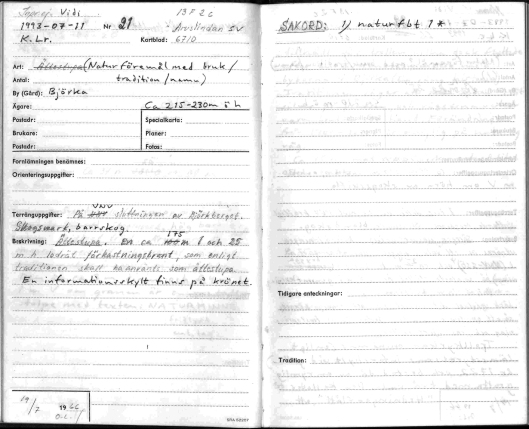 Vidi
1993-07-11 Nr 21
K. Lr.
13F 2c
Arvslindan SV
Kartblad: 6710
Art: Ättestupa (Naturföremål med bruk/
Antal: tradition/namn)
By (Gård): Björka
Ägare: Ca 215-230m ö h
Postadr:
Specialkarta:
Brukare:
Planer:
Postadr:
Fotos:
Fornlämningen benämnes:
Orienteringsuppgifter:
VNV
Terränguppgifter: På sluttningen av Björkberget.
Skogsmark, barrskog.
175
Beskrivning: Ättestupa. En ca 100 m l och 25
m h lodrät förkastningsbrant, som enligt
traditionen skall ha använts som ättestupa.
En informationsskylt finns på krönet.
19/7 1966
SAKORD: 1) naturfbt 1*
Tidigare anteckningar:
Tradition: